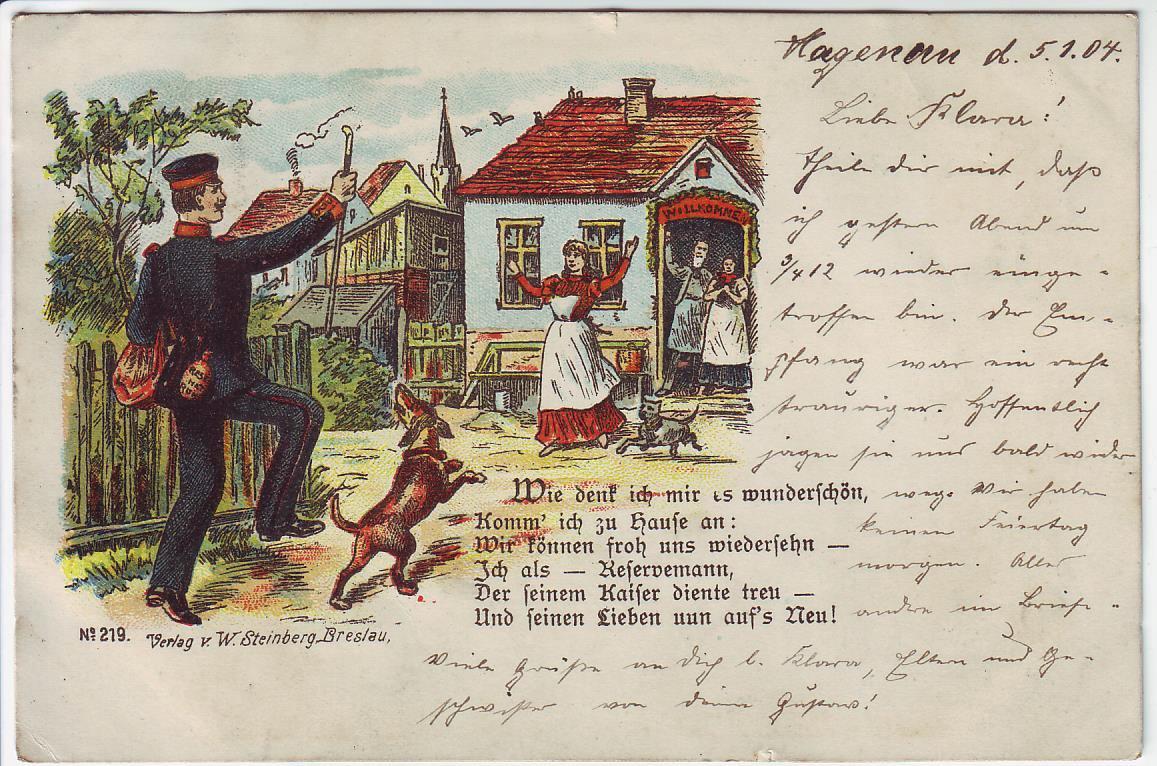 Hagenau d. 5.1.04.
Liebe Klara!
theile dir mit, daß
ich gestern Abend um
3/4 12 wieder einge-
troffen bin. Der Em-
pfang war ein recht
trauriger. Hoffentlich
jagen sie uns bald wider
weg. Wir haben
keinen Feiertag
morgen. Alles
andre im Briefe.
Viele Grüße an dich l. Klara, Eltern und Ge-
schwister von deinem Gustav!
WILLKOMMEN
Wie denk ich mir es wunderschön,
Komm' ich zu Hause an:
Wir können froh uns wiedersehn —
Ich als — Reservemann,
Der seinem Kaiser diente treu —
Und seinen Lieben uun auf's Neu!
No 219. Verlag v. W. Steinberg Breslau,